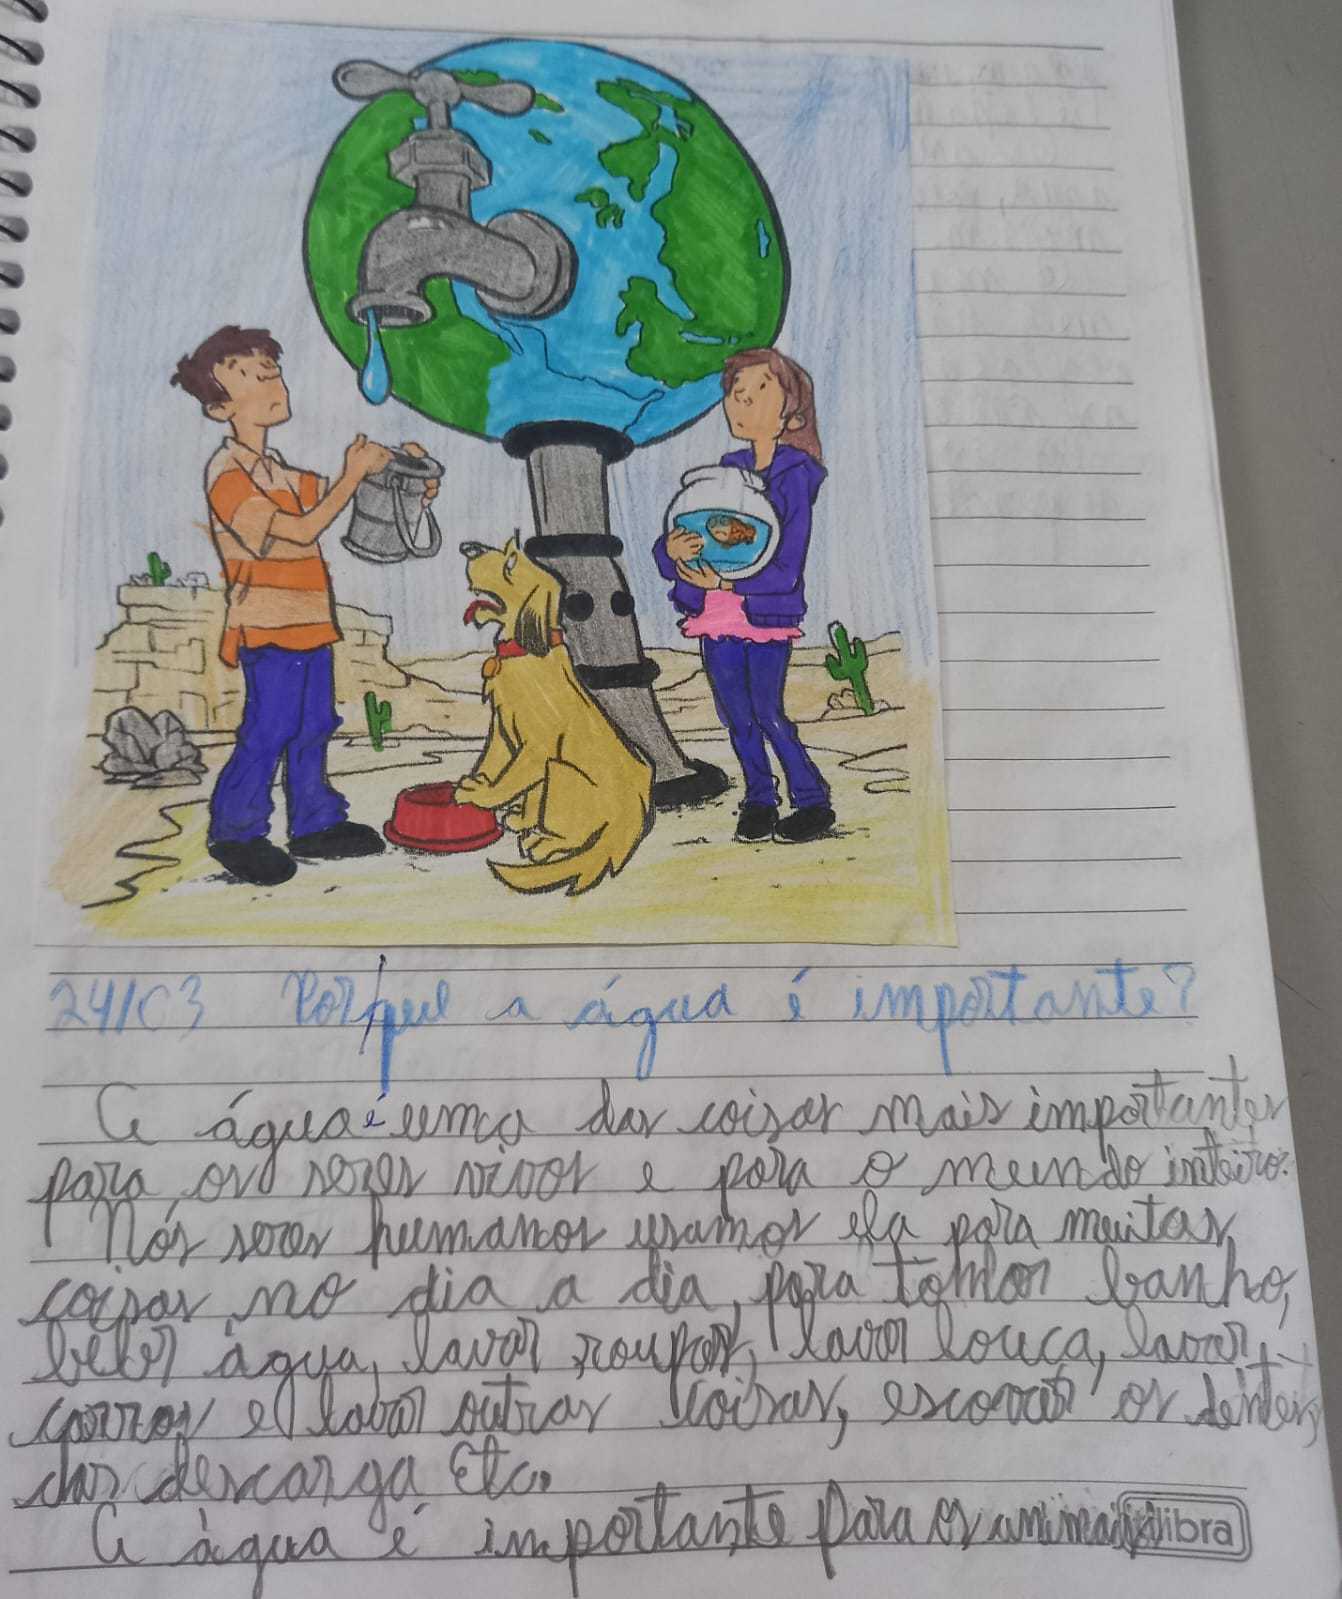 24/03 Por que a água é importante?
A água é uma das coisas mais importantes
para os seres vivos e para o mundo inteiro.
Nós seres humanos usamos ela para muitas
coisas no dia a dia, para tomar banho,
beber água, lavar roupas, lavar louça, lavar
carros e lavar outras coisas, escovar os dentes,
dar descarga Etc.
A água é importante para os animais
libra